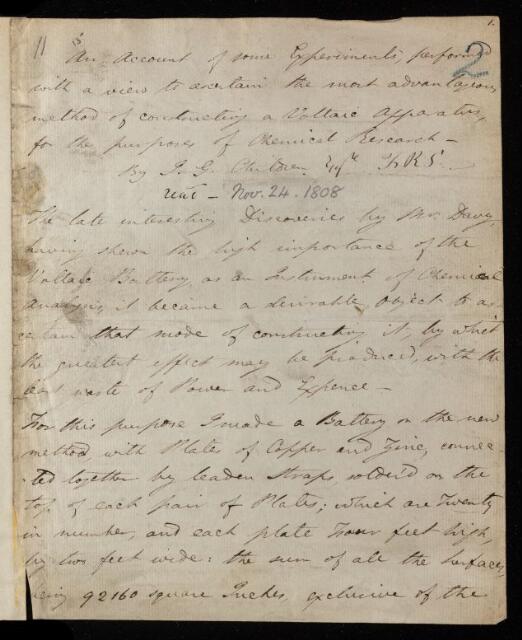 1.
11
2
An Account of some Experiments, performed
with a view to ascertain the most advantageous
method of constructing a Voltaic Apparatus,
for the purposes of Chemical Research —
By J. G. Children Esqr. F.R.S.
read — Nov. 24. 1808
The late interesting Discoveries by Mr. Davy,
having shewn the high importance of the
Voltaic Battery, as an Instrument of Chemical
Analysis, it became a desirable Object to as-
certain that mode of constructing it, by which
the greatest effect may be produced, with the
least waste of Power and Expence —
For this purpose I made a Battery on the new
method, with Plates of Copper and Zinc, connec-
-ted together by leaden Straps, solder'd on the
top of each pair of Plates; which are Twenty
in number, and each plate Four feet high,
by two feet wide: the sum of all the Surfaces,
being 92160 square Inches, exclusive of the